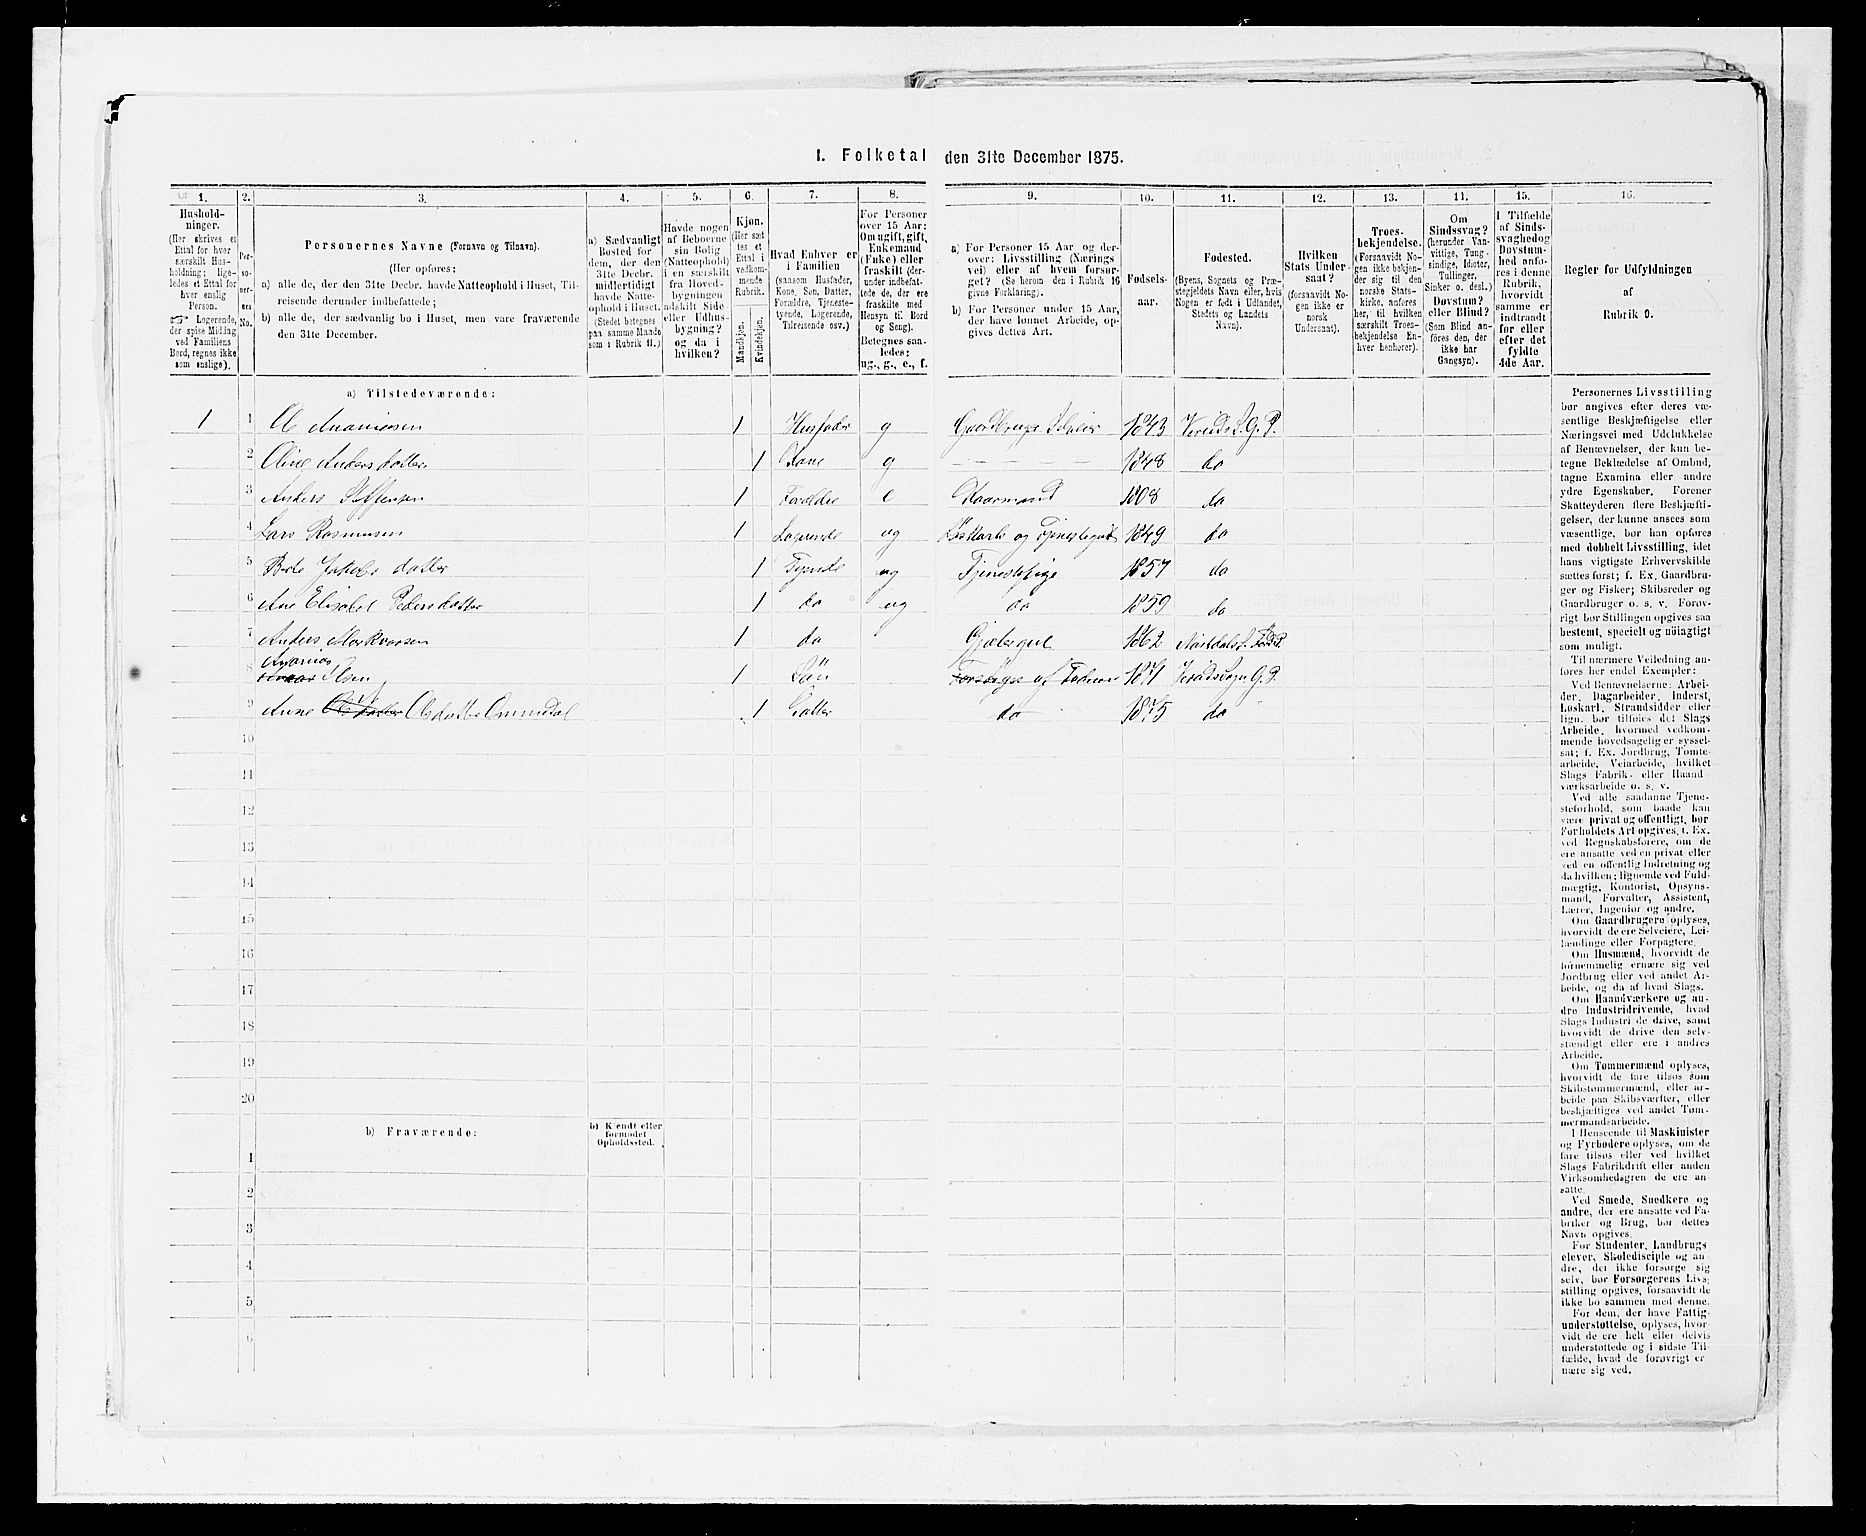 1. Folketal den 31te December 1875.
1.
2.
3.
4.
5.
6.
7.
8.
9.
10.
11.
12.
13.
14.
15.
16.
Hushold-
ninger.
(Her skrives et
Ettal for hver
særskilt Hus-
holdning; lige-
ledes et Ettal for
hver enslig
Person.
☞ Logerende,
der spise Middag
ved Familiens
Bord, regnes ikke
som enslige).
Per-
so-
ner-
nes
No.
Personernes Navne (Fornavn og Tilnavn).
(Her opføres:
a) alle de, der den 31te Decbr. havde Natteophold i Huset, Til-
reisende derunder indbefattede;
b) alle de, der sædvanlig bo i Huset, men vare fraværende
den 31te December.
a) Sædvanligt
Bosted for
dem, der den
31te Decbr.
midlertidigt
havde Natte-
ophold i Huset.
(Stedet betegnes
paa samme Maade
som i Rubrik 11.)
Havde nogen
af Beboerne
sin Bolig
(Natteophold)
i en særskilt
fra Hoved-
bygningen
adskilt Side
eller Udhus-
bygning?
og da i
hvilken?
Kjøn.
(Her sæt-
tes et
Ettal i
vedkom-
mende
Rubrik.
Mandkjøn.
Kvindekjøn.
Hvad Enhver er
i Familien
(saasom Husfader,
Kone, Søn, Datter,
Forældre, Tjeneste-
tyende, Logerende,
Tilreisende osv.)
For Personer
over 15 Aar:
Om ugift, gift,
Enkemand
(Enke) eller
fraskilt (der-
under indbefat-
tede de, der ere
fraskilte med
Hensyn til Bord
og Seng).
Betegnes saa-
ledes:
ug., g., e., f.
a) For Personer 15 Aar og der-
over: Livsstilling (Nærings
vei) eller af hvem forsør-
get? (Se herom den i Rubrik 16
givne Forklaring).
b) For Personer under 15 Aar,
der have lønnet Arbeide, op-
gives dettes Art.
Fødsels-
aar.
Fødested.
(Byens, Sognets og Præ-
stegjeldets Navn eller, hvis
Nogen er født i Udlandet,
Stedets og Landets
Navn).
Hvilken
Stats Under-
saat?
(forsaavidt No-
gen ikke er
norsk
Undersaat).
Troes-
bekjendelse.
(Forsaavidt No-
gen ikke bekjen-
der sig til den
norske Stats-
kirke, anføres
her, til hvilken
særskilt Troes-
bekjendelse En-
hver henhører).
Om
Sindssvag?
(herunder Van-
vittige, Tung-
sindige, Idioter,
Tullinger,
Sinker o. desl.)
Døvstum?
eller Blind?
(Som Blind an-
føres den, der
ikke har
Gangsyn).
I Tilfælde
af Sinds-
svaghed og
Døvstum-
hed anfø-
res i denne
Rubrik,
hvorvidt
samme er
indtraadt
før eller
efter det
fyldte
4de Aar.
Regler for Udfyldningen
af
Rubrik 9.
a) Tilstedeværende:
1 1 Ole Ananiasen 1 Husfader g Gaardbruger Selveier 1843 G. P.
2 Oline Andersdatter 1 Kone g 1848 do
3 Anders Steffensen 1 Forældre e Kaarmand 1808 do
4 Lars Rasmusen 1 Logerende ug og 1849 do
5 Jakobsdatter 1 Tyende ug Tjenestepige 1857 do
6 Ane Elisabet Pedersdatter 1 do ug do 1859 do
7 Anders 1 do Gjætergut 1862
Ananias
8 Olsen 1 Sön Forsörges af Faderen 1871 G. P.
9 Anne Olsdatter 1 Datter do 1875 do
10
11
12
13
14
15
16
17
18
19
20
b) Fraværende:
b) Kjendt eller
formodet
Opholdssted.
1
2
3
4
5
6
Personernes Livsstilling
bør angives efter deres væ-
sentlige Beskjæftigelse eller
Næringsvei med Udelukkelse
af Benævnelser, der kun be-
tegne Beklædelse af Ombud,
tagne Examina eller andre
ydre Egenskaber. Forener
Skatteyderen flere Beskjæfti-
gelser, der kunne ansees som
væsentlige, bør han opføres
med dobbelt Livsstilling, idet
hans vigtigste Erhvervskilde
sættes først; f. Ex. Gaardbru-
ger og Fisker; Skibsreder og
Gaardbruger o. s. v. Forøv-
rigt bør Stillingen opgives saa
bestemt, specielt og nöiagtigt
som muligt.
Til nærmere Veiledning an-
føres her endel Exempler:
Ved Benævnelserne: Arbei-
der, Dagarbeider, Inderst,
Løskarl, Strandsidder eller
lign. bør tilføies det Slags
Arbeide, hvormed vedkom-
mende hovedsagelig er syssel-
sat; f. Ex. Jordbrug, Tomte-
arbeide, Veiarbeide, hvilket
Slags Fabrik- eller Haand-
værksarbeide o. s. v.
Ved alle saadanne Tjene-
steforhold, som baade kan
være privat og offentligt, bør
Forholdets Art opgives, t. Ex.
ved Regnskabsførere, om de
ere ansatte ved en privat eller
ved en offentlig Indretning og
da hvilken; lignende ved Fuld-
mægtig, Kontorist, Opsyns-
mand, Forvalter, Assistent,
Lærer, Ingeniør og andre.
Om Gaardbrugere oplyses,
hvorvidt de ere Selveiere, Lei-
lændinge eller Forpagtere.
Om Husmænd, hvorvidt de
fornemmelig ernære sig ved
Jordbrug eller ved andet Ar-
beide, og da af hvad Slags.
Om Haandværkere og an-
dre Industridrivende, hvad
Slags Industri de drive, samt
hvorvidt de drive den selv-
stændigt eller ere i andres
Arbeide.
Om Tømmermænd oplyses,
hvorvidt de fare tilsøs som
Skibstømmermænd, eller ar-
beide paa Skibsværfter, eller
beskjæftiges ved andet Tøm-
mermandsarbeide.
I Henseende til Maskinister
og Fyrbødere oplyses, om de
fare tilsøs eller ved hvilket
Slags Fabrikdrift eller anden
Virksomhedsgren de ere an-
satte.
Ved Smede, Snedkere og
andre, der ere ansatte ved Fa-
briker og Brug, bør dettes
Navn opgives.
For Studenter, Landbrugs-
elever, Skoledisciple og an-
dre, der ikke forsørge sig
selv, bør Forsørgerens Livs-
stilling opgives, forsaavidt de
ikke bo sammen med denne.
For dem, der have Fattig-
understøttelse, oplyses, hvor-
vidt de ere helt eller delvis
understøttede og i sidste Til-
fælde, hvad de forøvrigt er-
nære sig ved.